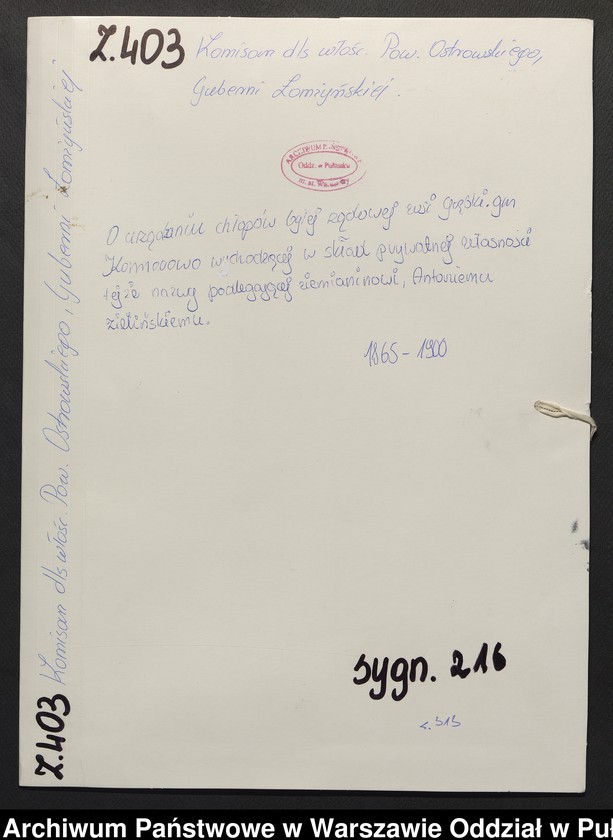 Z.403 Komisarz dls włośc. Pow. Ostrowskiego,
Guberni Łomżyńskiej.
ARCHIWUM
Oddz. w Pułtusku
O urządzaniu chłopów byłej rządowej wsi gm
Komorowo wchodzącej w skład prywatnej własności
tejże nazwy podlegającej ziemianinowi, Antoniemu
Zielińskiemu.
1865-1900
sygn. 216
Z.403 Komisarz dls włośc. Pow. Ostrowskiego, Guberni Łomżyńskiej
Archiwum Państwowe w Warszawie Oddział w Pu